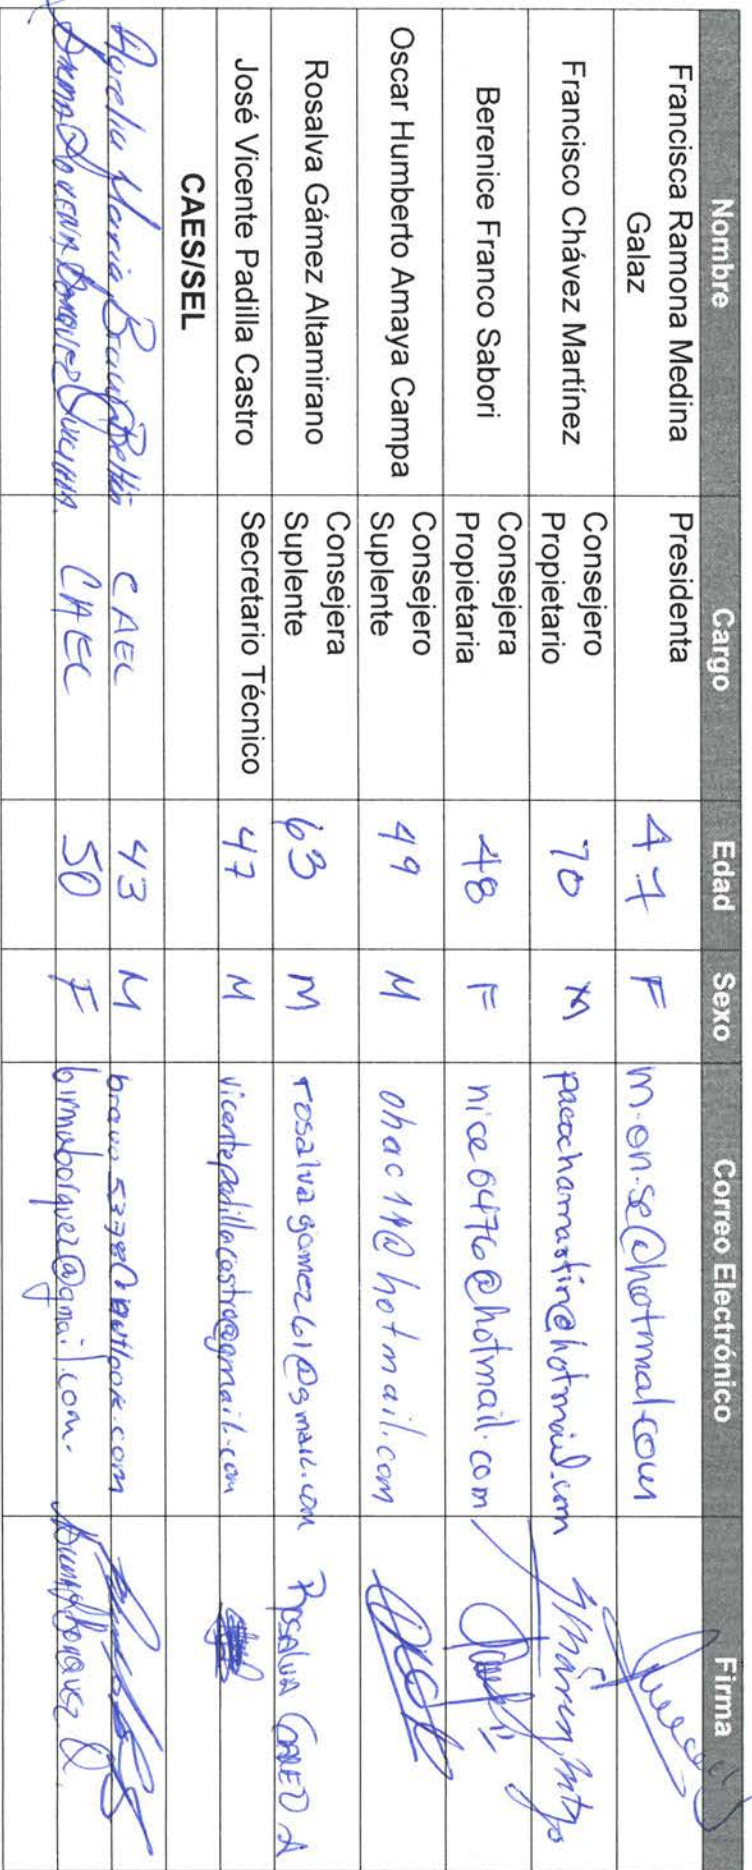 Nombre Cargo Edad Sexo Correo Electrónico Firma
Francisca Ramona Medina Galaz Presidenta 47 F m.on.se@hotmal.com
Francisco Chávez Martínez Consejero Propietario 70 M pacochamartin@hotmail.com
Berenice Franco Sabori Consejera Propietaria 48 F nice6476@hotmail.com
Oscar Humberto Amaya Campa Consejero Suplente 49 M ohac14@hotmail.com
Rosalva Gámez Altamirano Consejera Suplente 63 M rosalvagamez61@gmail.com Rosalva Gamez A
José Vicente Padilla Castro Secretario Técnico 47 M vicentepadillacastro@gmail.com
CAES/SEL
Aurelia Maria CAEL 43 M
CAEL 50 F @gmail.com.